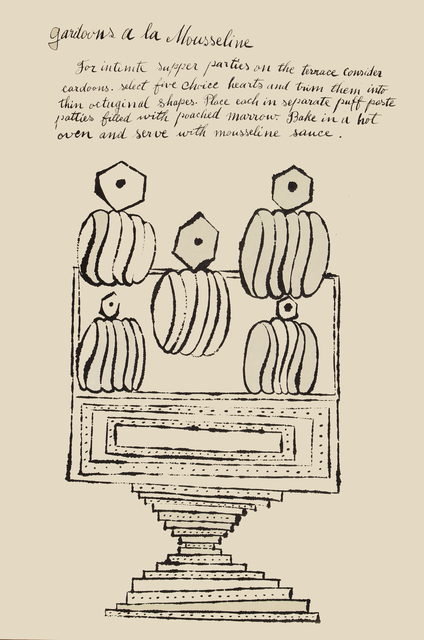 gardoons a la Mousseline
For intimte supper parties on the terrace consider
cardoons. select five choice hearts and trim them into
thin octuginal shapes. Place each in separate puff paste
patties filled with poached marrow. Bake in a hot
oven and serve with mousseline sauce.